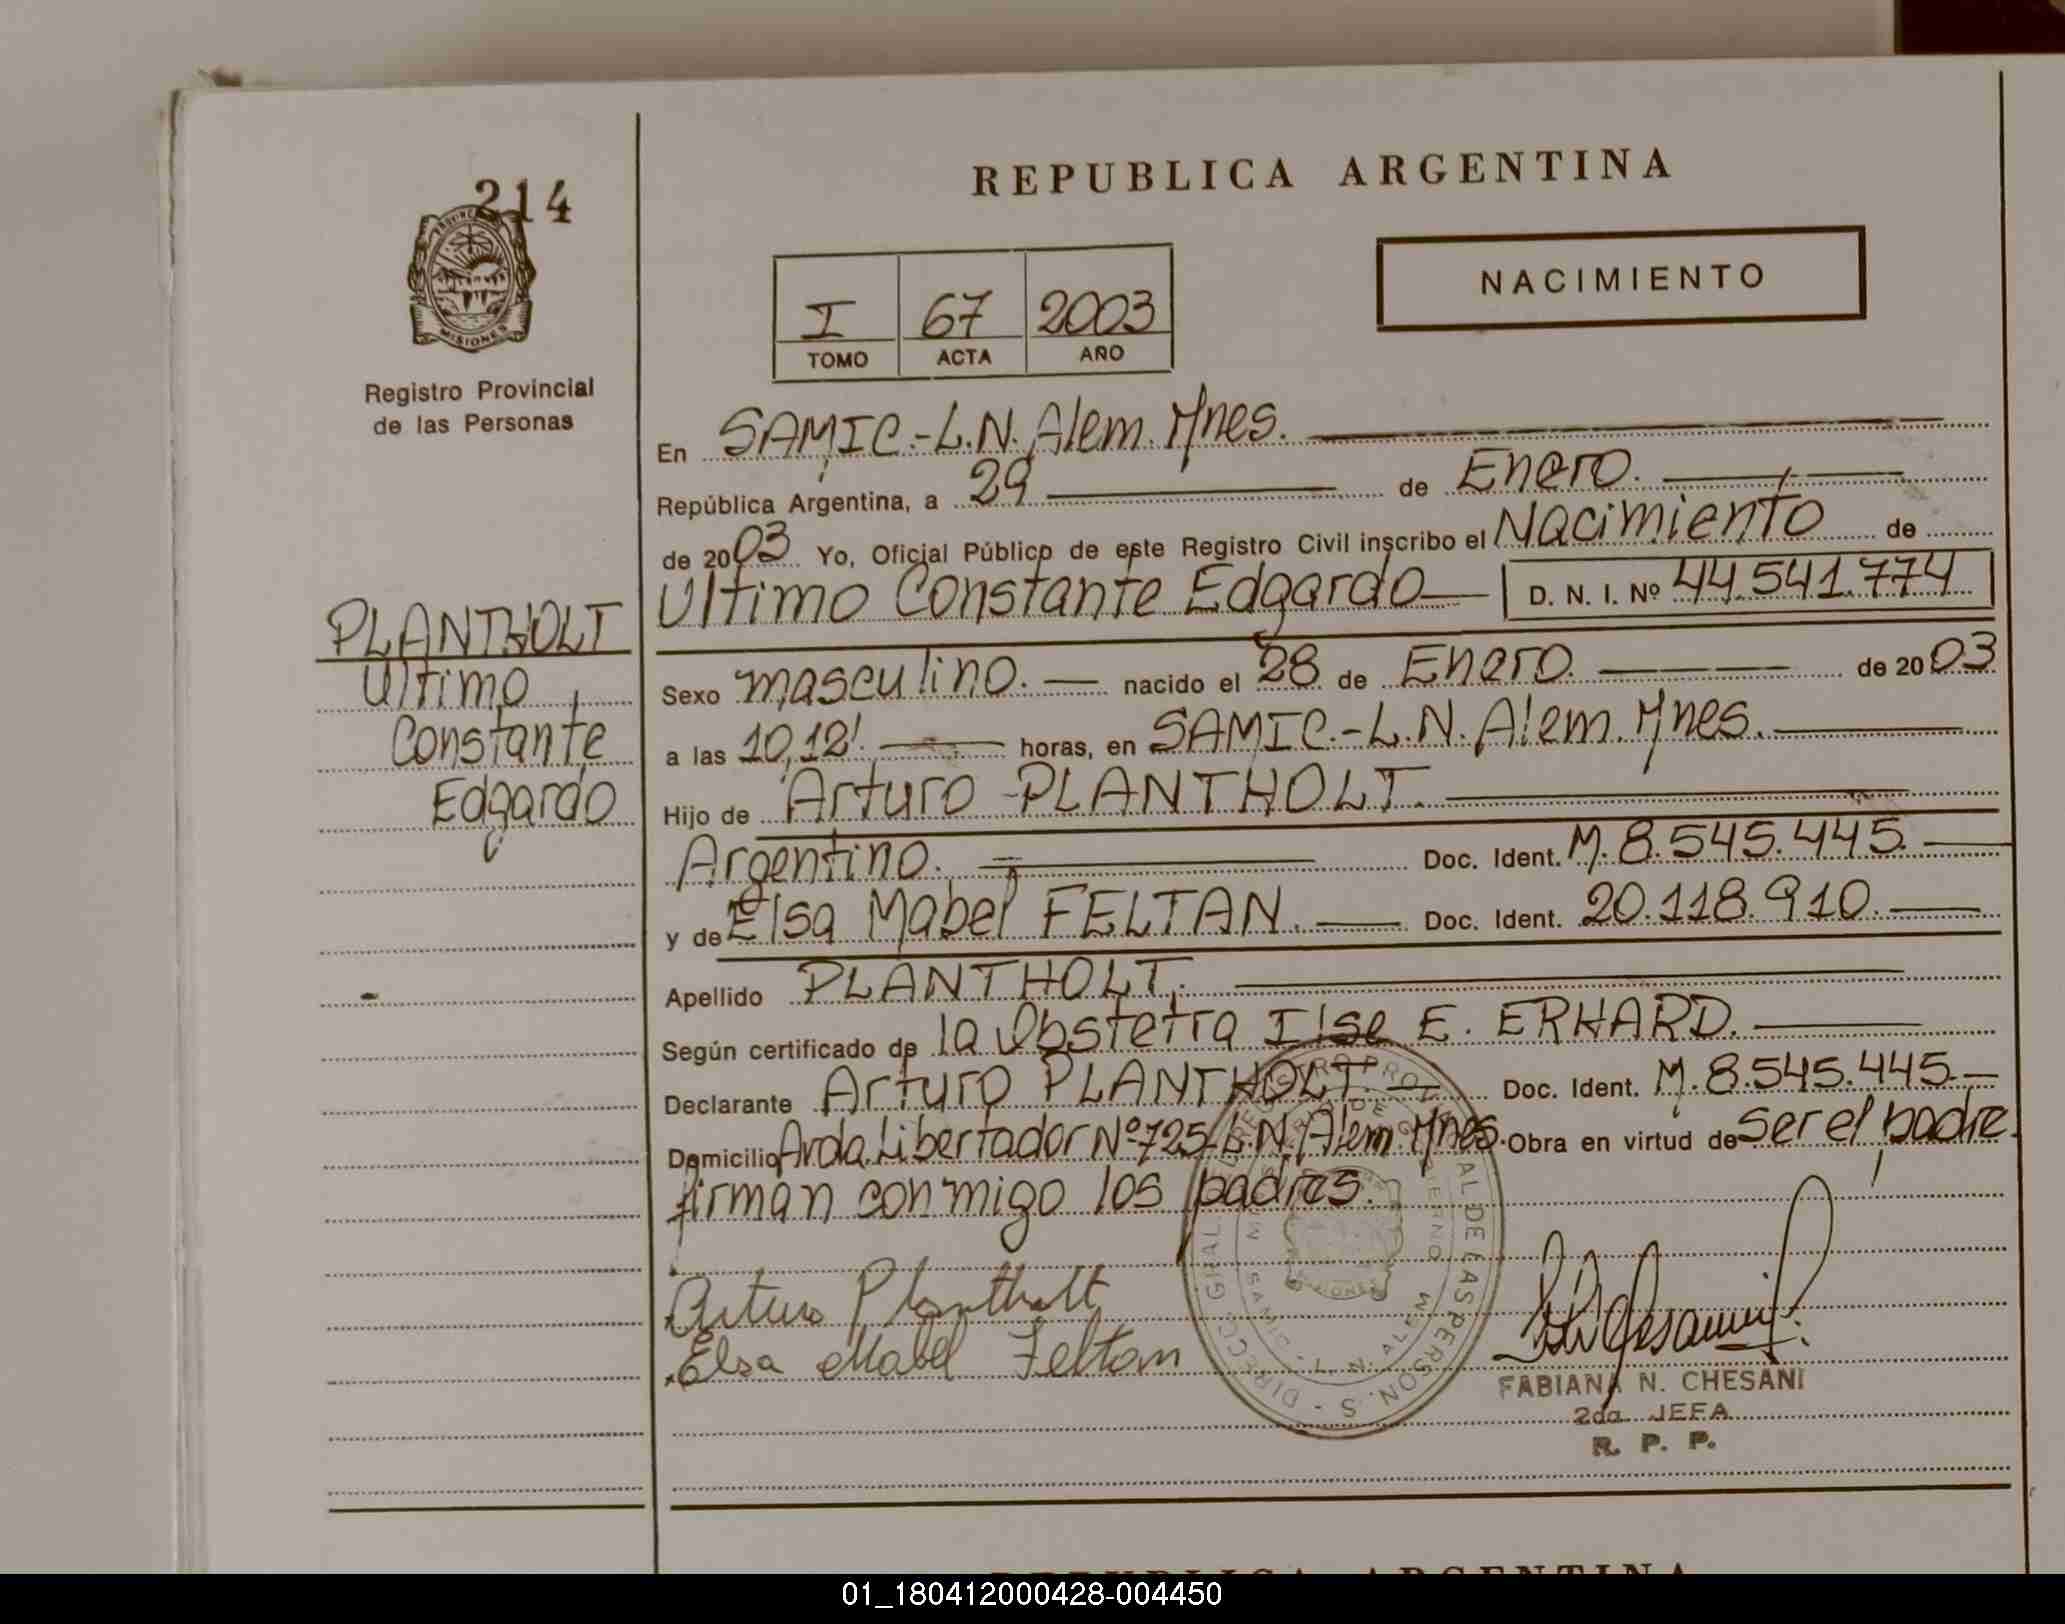 214
PROVINCIA
MISIONES
Registro Provincial
de las Personas
PLANTHOLT
Ultimo
Constante
Edgardo
REPUBLICA ARGENTINA
I 67 2003
TOMO ACTA AÑO
NACIMIENTO
En SAMIC.-L.N.Alem.Mnes.
República Argentina, a 29 de Enero.
de 2003 Yo, Oficial Público de este Registro Civil inscribo el Nacimiento de
Ultimo Constante Edgardo D. N. I. Nº 44.541.774
Sexo masculino. nacido el 28 de Enero. de 2003
a las 10,12'. horas, en SAMIC.-L.N.Alem.Mnes.
Hijo de Arturo PLANTHOLT.
Argentino. Doc. Ident. M. 8.545.445.
y de Elsa Mabel FELTAN. Doc. Ident. 20.118.910.
Apellido PLANTHOLT.
Según certificado de la Obstetra Ilse E. ERHARD.
Declarante Arturo PLANTHOLT. Doc. Ident. M. 8.545.445.
Domicilio Avda.Libertador Nº725-L.N.Alem.Mnes. Obra en virtud de ser el padre.
firman conmigo los padres.
Arturo Plantholt
Elsa Mabel Feltan
FABIANA N. CHESANI
2da. JEFA
R. P. P.
REPUBLICA ARGENTINA
01_180412000428-004450